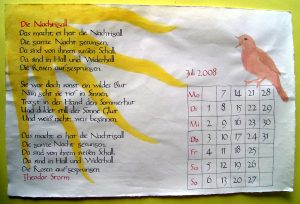 Die Nachtigall
Das macht, es hat die Nachtigall
Die ganze Nacht gesungen,
Da sind von ihrem süßen Schall,
Da sind in Hall und Widerhall
Die Rosen aufgesprungen.
Sie war doch sonst ein wildes Blut
Nun geht sie tief in Sinnen,
Trägt in der Hand den Sommerhut
Und duldet still der Sonne Glut
Und weiß nicht, was beginnen.
Das macht, es hat die Nachtigall
Die ganze Nacht gesungen,
Da sind von ihrem süßen Schall,
Da sind in Hall und Widerhall
Die Rosen aufgesprungen.
Theodor Storm
Juli 2008
Mo 7 14 21 28
Di 1 8 15 22 29
Mi 2 9 16 23 30
Do 3 10 17 24 31
Fr 4 11 18 25
Sa 5 12 19 26
So 6 13 20 27